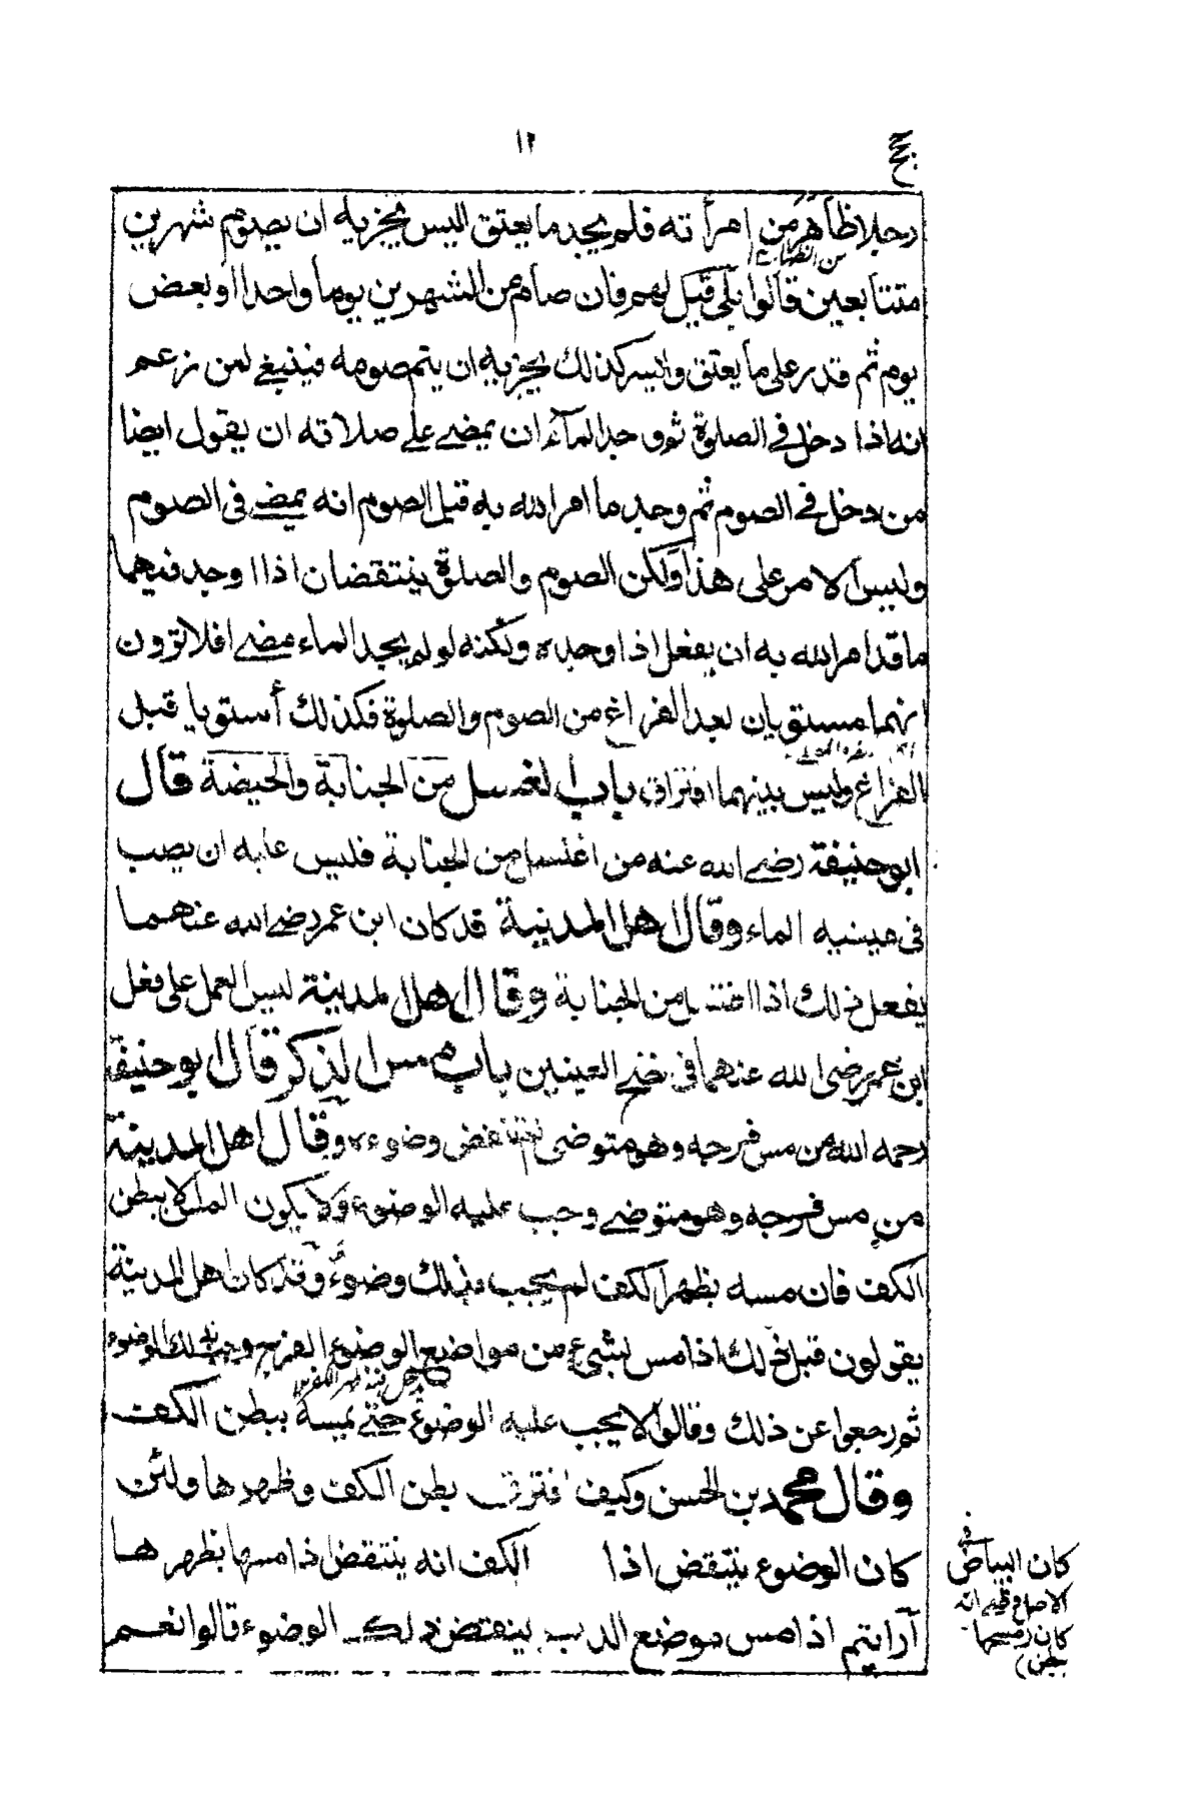 ١٢
رجلا ظاهر من امرأ ته فلم يجد ما يعتق اليس يجزيه ان يصوم شهرين
متتابعين قالوا بلى قيل لهم فان صام من الشهرين يوما واحدا او بعض
من الصيام
يوم ثم قدر على ما يعتق واليسر كذلك يجزيه ان يتم صومه فينبغي لمن زعم
انه اذا دخل في الصلوة ثم وجد الماء ان يمضي على صلاته ان يقول ايضا
من دخل في الصوم ثم وجد ما امر الله به قبل الصوم انه يمضي في الصوم
وليس الامر على هذا ولكن الصوم والصلوة ينتقضان اذا ا وجد فيهما
ما قد امر الله به ان يفعل اذا وجده ولكنه لو لم يجد الماء مضى افلا ترون
انهما مستويان بعد الفراغ من الصوم والصلوة فكذلك أستويا قبل
الفراغ وليس بينهما افتراق باب الغسل من الجنابة والحيضة قال
ابو حنيفة رضي الله عنه من اغتسل من الجنابة فليس عليه ان يصب
في عينيه الماء وقال اهل المدينة قد كان ابن عمر رضي الله عنهما
يفعل ذلك اذا اغتسل من الجنابة وقال اهل المدينة ليس العمل على فعل
ابن عمر رضى الله عنهما في نضح العينين باب مس الذكر قال ابو حنيفة
رحمه الله من مس فرجه وهو متوضى وضوءه وقال اهل المدينة
من مس فرجه وهو متوضي وجب عليه الوضوء ولا يكون المس الا ببطن
الكف فان مسه بظهر الكف لم يجب بذلك وضوء وقد كان اهل المدينة
يقولون قبل ذلك اذا مس بشيء من مواضع الوضوع الفرج وجب لذلك الوضوء
ثم رجعوا عن ذلك وقالوا لا يجب عليه الوضوء حتى يمسه ببطن الكف
وقال محمد بن الحسن وكيف افترق بطن الكف وظهرها ولئن
كان الوضوء ينتقض اذا الكف انه ينتقض اذا مسها بظهر ها
أرايتم اذا مس موضع الدبر ينتقض ذلك الوضوء قالوا نعم
كان البياض في
الاصل و انه
كان مسها
ببطن)